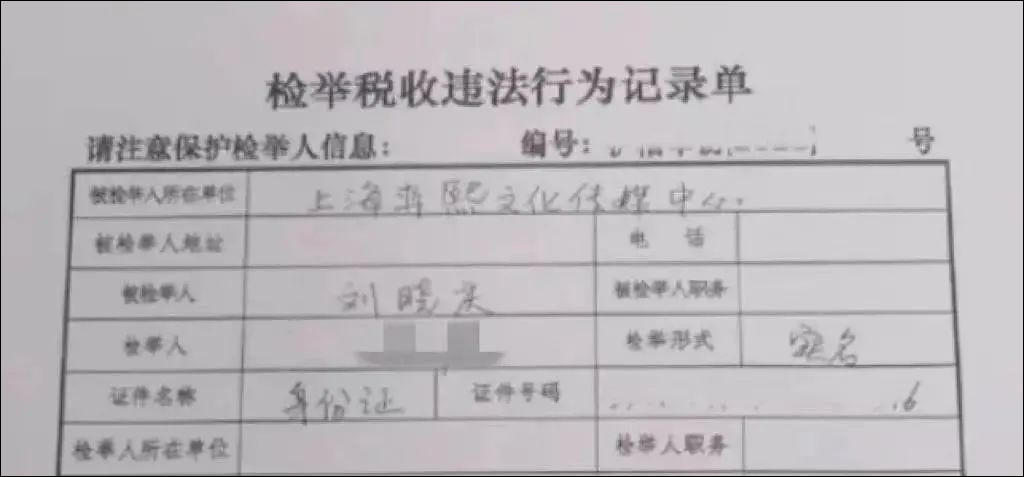 检举税收违法行为记录单
请注意保护检举人信息: 编号: 号
被检举人所在单位 上海 熙文化传媒中心
被检举人地址 电 话
被检举人 刘晓庆 被检举人职务
检举人 检举形式 实名
证件名称 身份证 证件号码 6
检举人所在单位 检举人职务